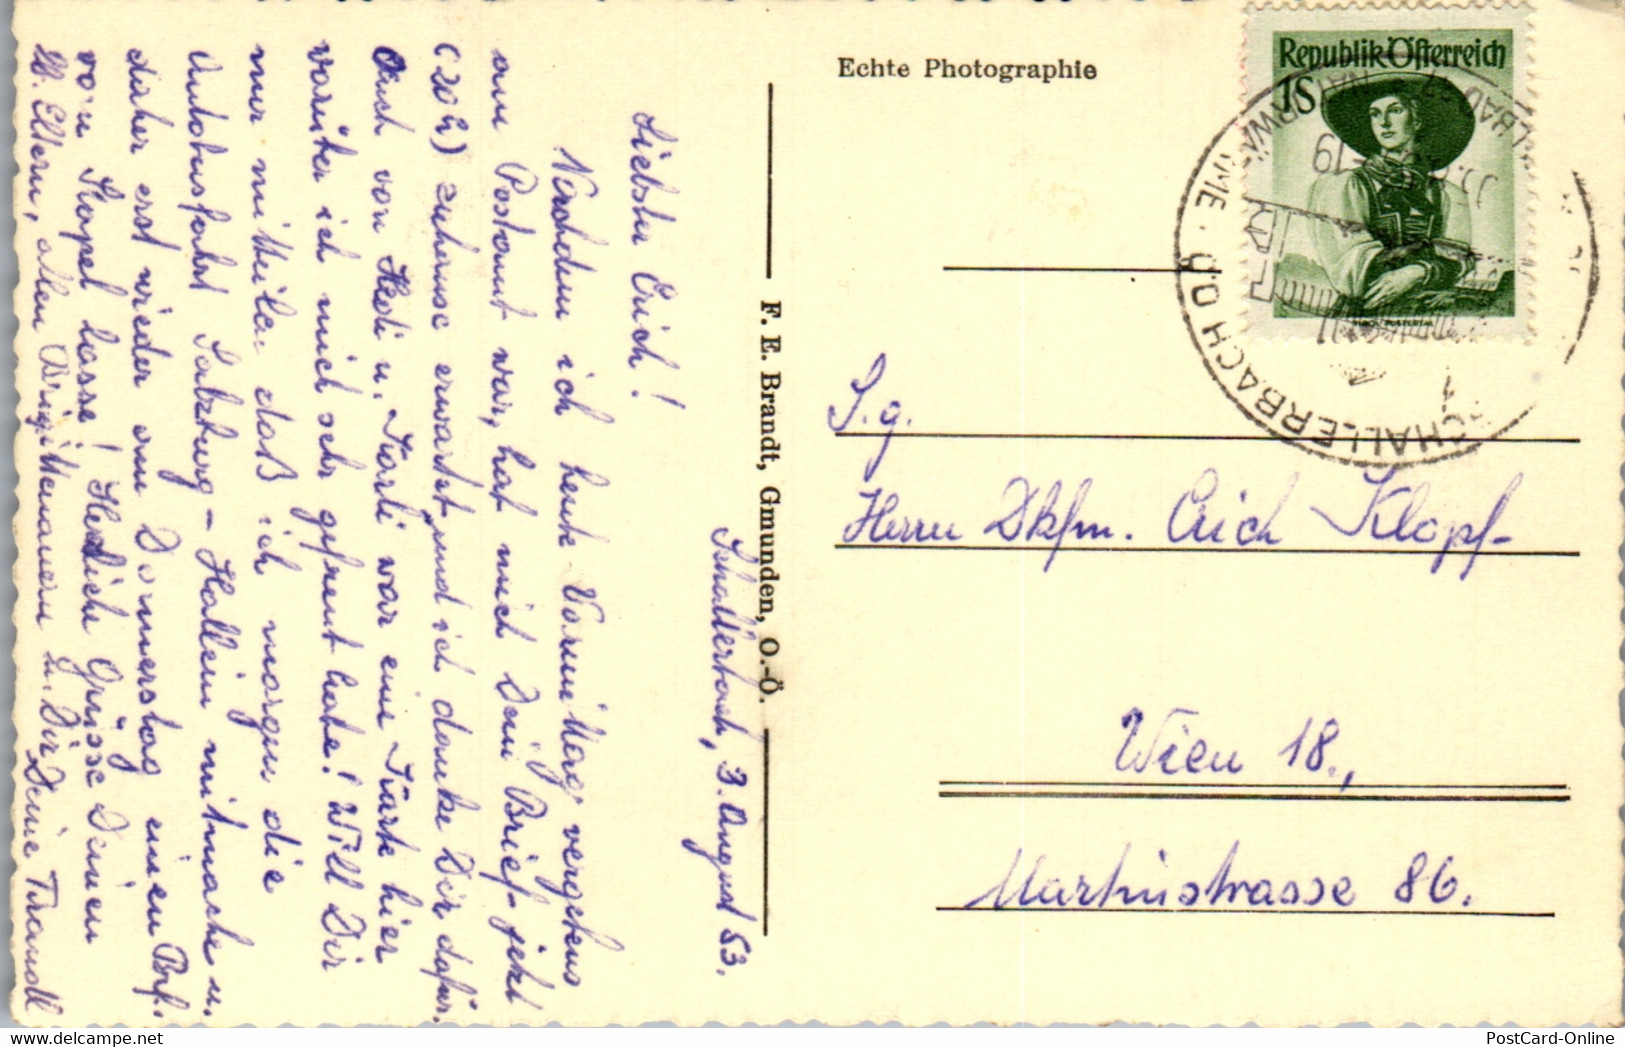 Schallerbach, 3. August 53.
Liebster Erich!
Nachdem ich heute Vormittag vergebens
am Postamt war, hat mich Dein Brief jetzt
(20 h) zuhause erwartet und ich danke Dir dafür.
Auch von Hedi u. Karli war eine Karte hier
worüber ich mich sehr gefreut habe! Will Dir
nur mitteilen daß ich morgen die
Autobusfahrt Salzburg – Hallein mitmache u.
daher erst wieder am Donnerstag einen Brf.
vom Stapel lasse! Herzliche Grüsse Deinen
lb. Eltern, allen u. Dir Deine Traudl
Echte Photographie
F. E. Brandt, Gmunden, O.-Ö.
Republik Österreich
1S
SCHALLERBACH O.Ö.
S.g.
Herrn Dkfm. Erich Klopf-
Wien 18.,
Martinstrasse 86.
PostCard-Online